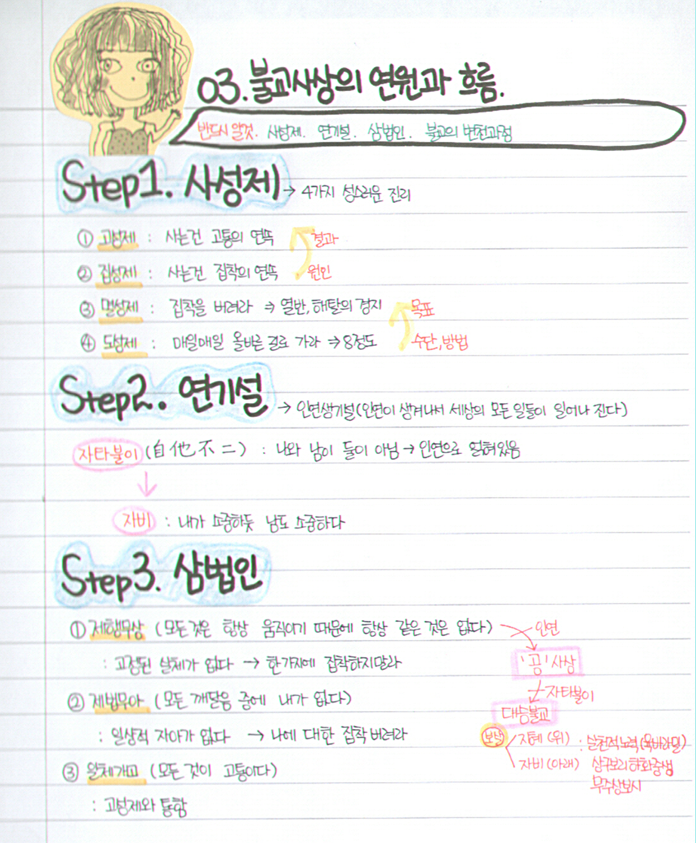 03. 불교사상의 연원과 흐름.
반드시 알것. 사성제. 연기설. 삼법인. 불교의 변천과정
Step1. 사성제 → 4가지 성스러운 진리
① 고성제 : 사는건 고통의 연속 결과
② 집성제 : 사는건 집착의 연속 원인
③ 멸성제 : 집착을 버려라 → 열반, 해탈의 경지 목표
④ 도성제 : 매일매일 올바른 길로 가라 → 8정도 수단, 방법
Step2. 연기설 → 인연생기설(인연이 생겨나서 세상의 모든 일들이 일어나 진다)
자타불이 (自他不二) : 나와 남이 둘이 아님 → 인연으로 얽혀있음
자비 : 내가 소중하듯 남도 소중하다
Step3. 삼법인
① 제행무상 (모든것은 항상 움직이기 때문에 항상 같은 것은 없다) 인연
: 고정된 실체가 없다 → 한가지에 집착하지말라 '공'사상
② 제법무아 (모든 깨달음 중에 내가 없다) 자타불이
대승불교
: 일상적 자아가 없다 → 나에 대한 집착 버려라 보살 지혜 (위) : 실천적노력(육바라밀)
③ 일체개고 (모든 것이 고통이다) 자비 (아래) 상구보리하화중생
무주상보시
: 고성제와 통함